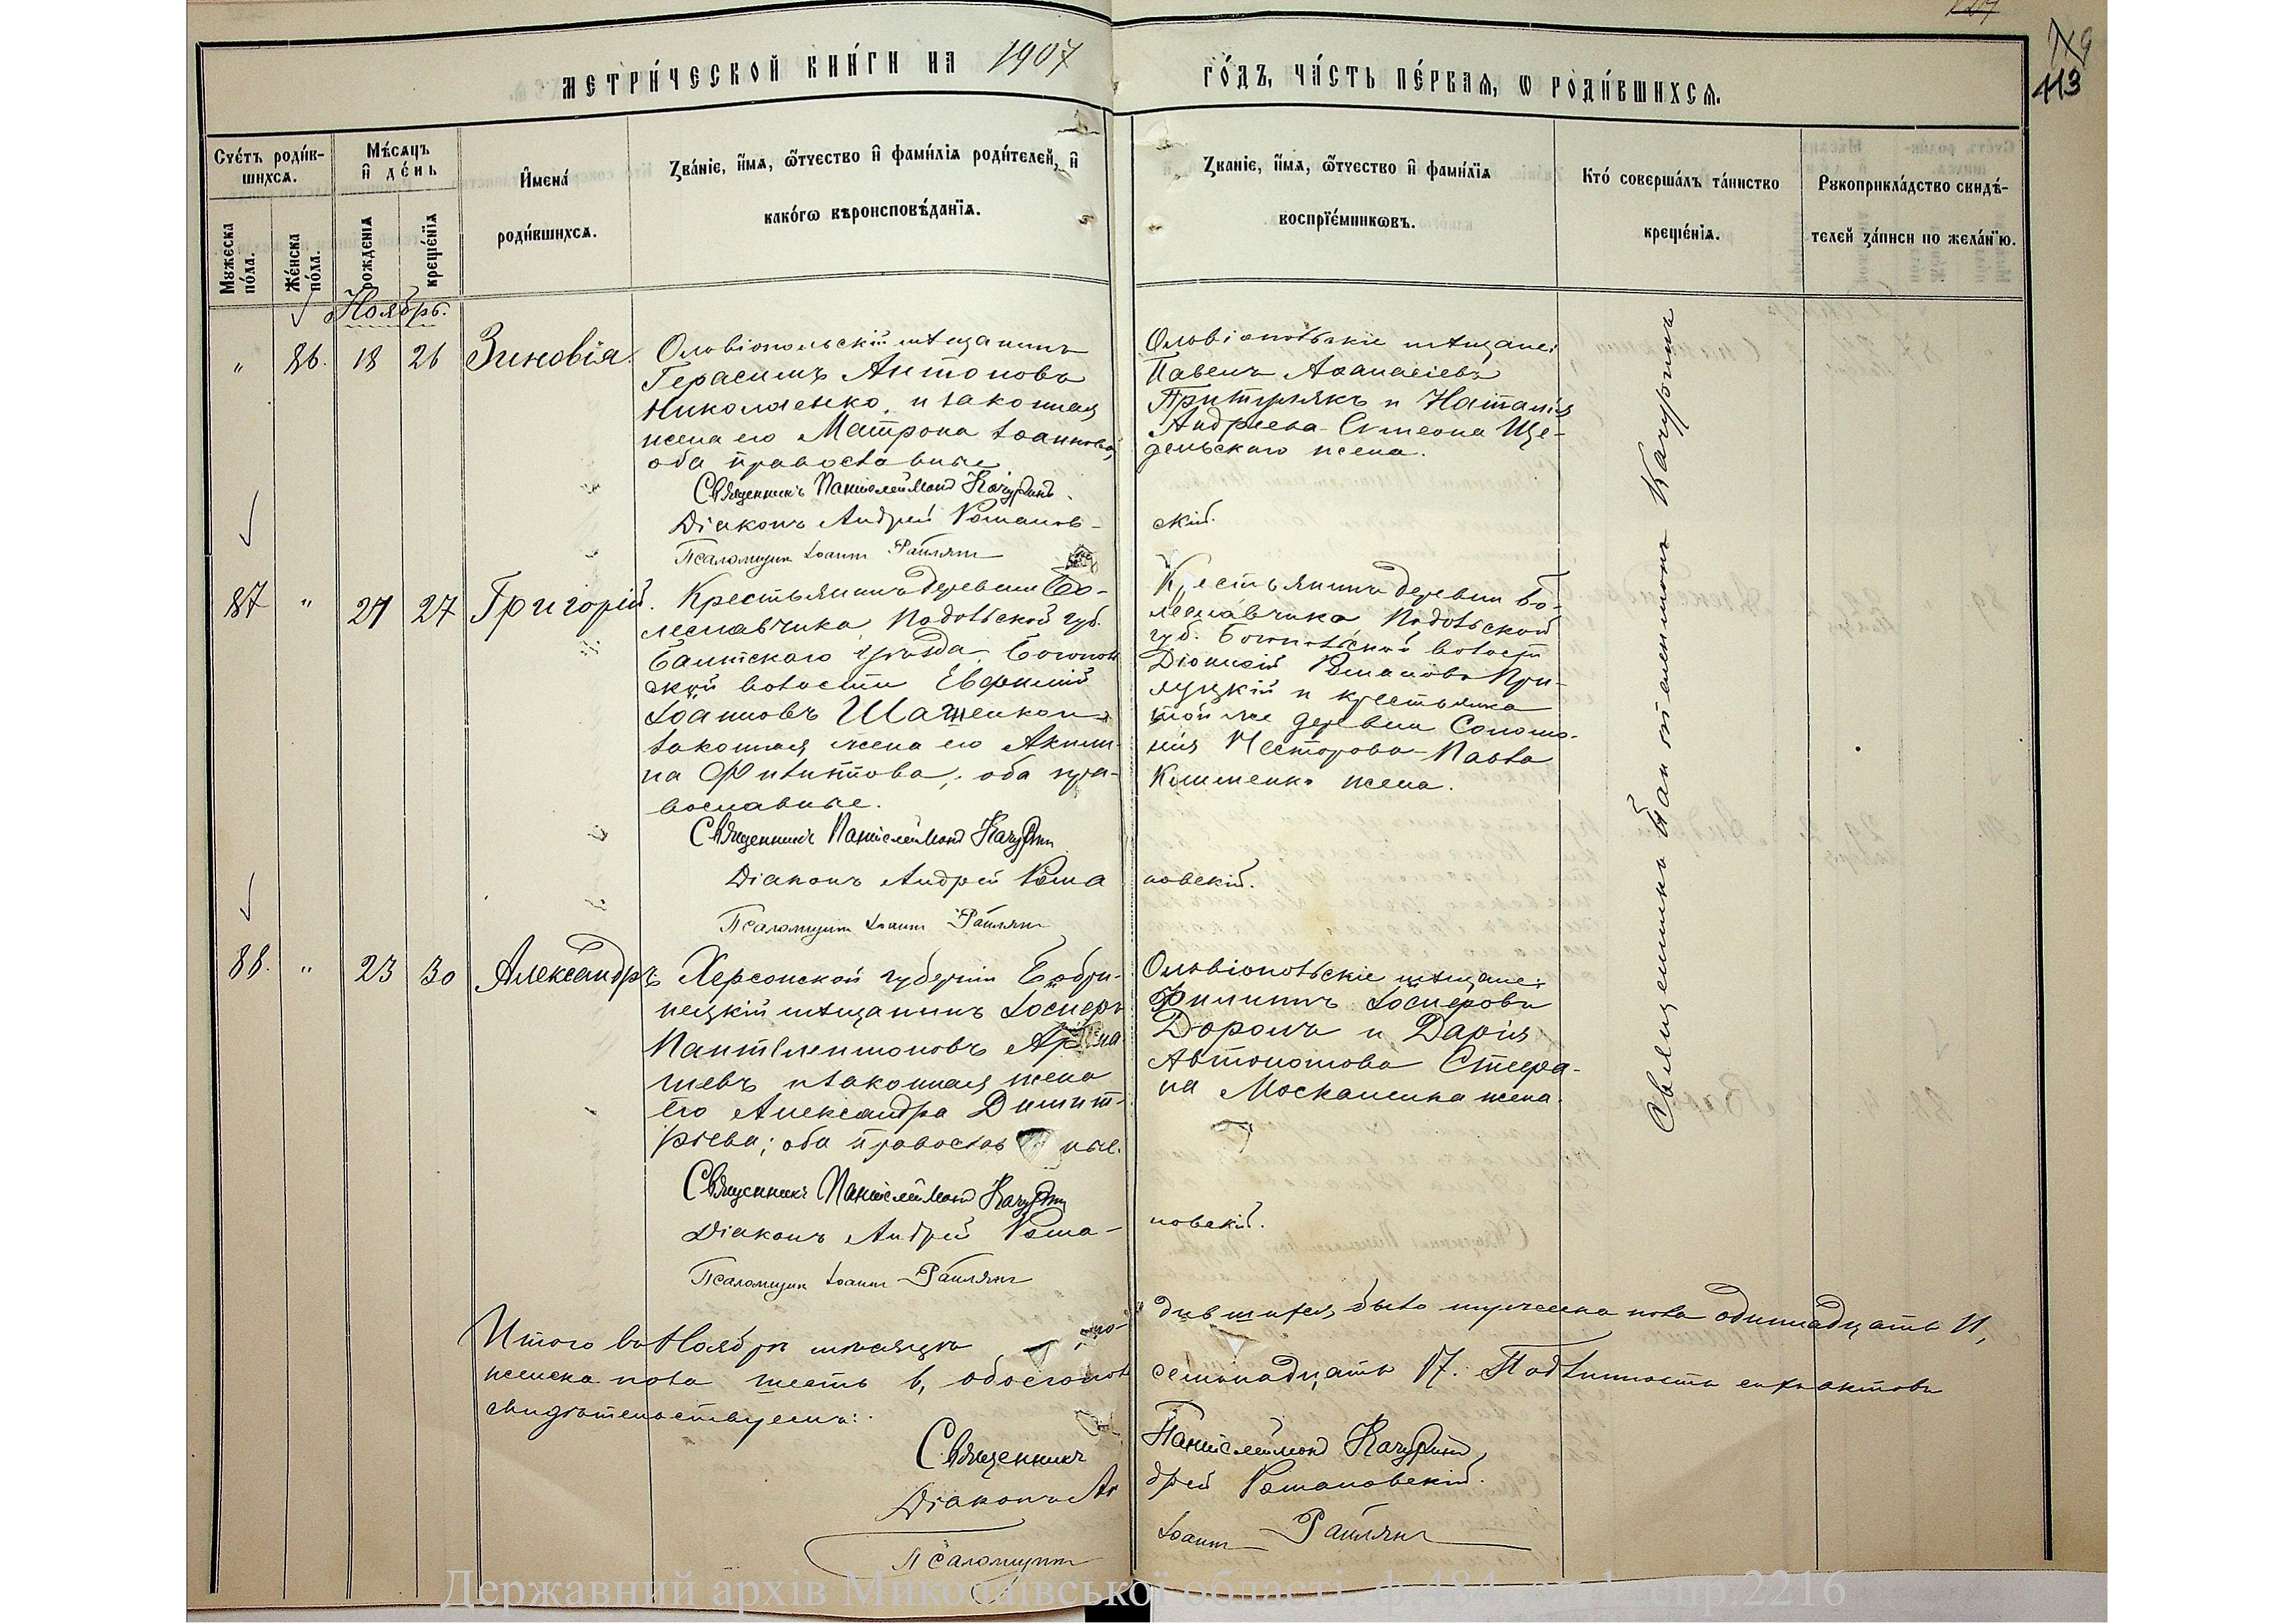 МЕТРИ́ЧЕСКОЙ КНИ́ГИ НА 1907 ГО́ДЪ, ЧА́СТЬ ПЕ́РВАЯ, Ѡ РОДИ́ВШИХСЯ.
113
Сче́тъ роди́вшихся.
Мужеска по́ла.
Же́нска по́ла.
Мѣ́сяцъ и҆ де́нь
рожденія
креще́нїя
И҆мена́ роди́вшихся.
Зва́ніе, и҆́мя, ѻ҆́тчество и҆ фами́лія роди́телей, и҆ како́гѡ вѣроисповѣ́данїя.
Зва́ніе, и҆́мя, ѻ҆́тчество и҆ фами́лїя воспрїе́мникѡвъ.
Кто́ соверша́лъ та́инство креще́нія.
Рукоприкла́дство свидѣ́телей за́писи по жела́нїю.
Ноябрь.
" 86. 18 26 Зиновія.
Ольвіопольскій мѣщанинъ
Герасимъ Антоновъ
Николаенко, и законная
жена его Матрона Іоаннова,
оба православные
Священникъ Пантелеймонъ Качуринъ.
Діаконъ Андрей Романов-
Псаломщикъ Іоаннъ
Ольвіопольскіе мѣщане:
Павелъ Аѳанасіевъ
Притулякъ и Наталія
Андреева Симеона Ще-
дельскаго жена.
скій.
87 " 21 27 Григорій.
Крестьянинъ деревни Бо-
леславчика Подольской губ.
Балтскаго уѣзда, Богополь
ской волости Евфимій
Іоанновъ
законная жена его Акили-
на Филиппова; оба пра-
вославные.
Священникъ Пантелеймонъ Качуринъ
Діаконъ Андрей Рома
Псаломщикъ Іоаннъ
Крестьянинъ деревни Бо-
леславчика Подольской
губ. Богопольской волости
Діонисій Романовъ При-
луцкій и крестьянка
той же деревни Соломо-
нія Несторова Павла
жена.
новскій.
88. " 23 30 Александръ
Херсонской губерніи Бобри-
нецкій мѣщанинъ Іосифъ
Пантелеимоновъ
и законная жена
его Александра Димит-
ріева; оба православные.
Священникъ Пантелеймонъ Качуринъ
Діаконъ Андрей Рома-
Псаломщикъ Іоаннъ
Ольвіопольскіе мѣщане:
Филиппъ Іосифовъ
Доронъ и Дарія
Автономова Стефа-
на Москаленка жена.
новскій.
Священникъ Пантелеимонъ Качуринъ
Итого въ Ноябрѣ мѣсяцѣ ро- дившихся было мужеска пола одинадцать 11,
женска пола шесть 6, обоего пола семнадцать 17. Подлинность сихъ актовъ
свидѣтельствуемъ:
Священникъ Пантелеймонъ Качуринъ,
Діаконъ Андрей Романовскій.
Псаломщикъ Іоаннъ
Державний архів Миколаївської області, ф.484, оп.1, спр.2216